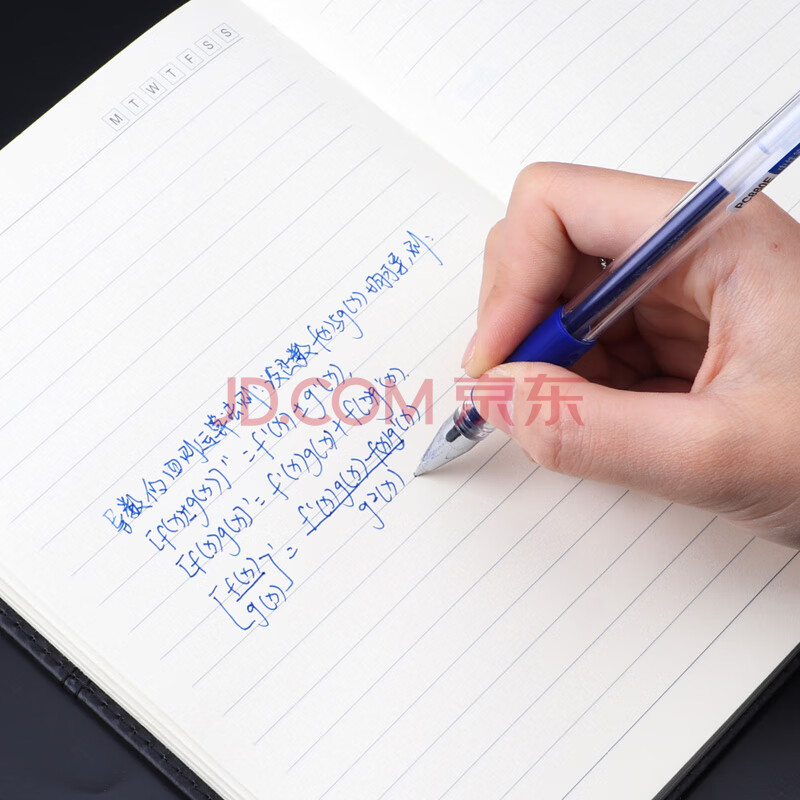 M T W T F S S
导数的四则运算法则:设函数f(x),g(x)均可导,则:
[f(x)±g(x)]'=f'(x)±g'(x),
[f(x)g(x)]'=f'(x)g(x)+f(x)g'(x).
[f(x)/g(x)]'=f'(x)g(x)-f(x)g'(x)/g2(x)
JD.COM 京东